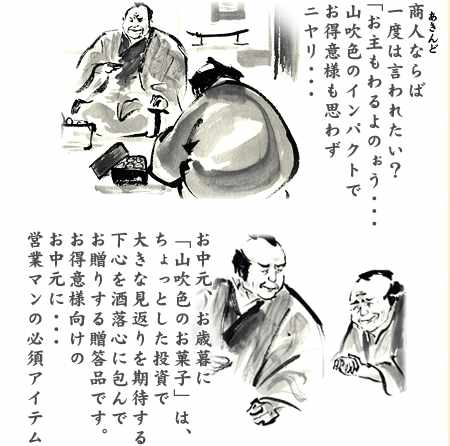 商人ならば
あきんど
一度は言われたい？
「お主もわるよのぉう・・・
山吹色のインパクトで
お得意様も思わず
ニヤリ・・・
お中元、お歳暮に
「山吹色のお菓子」は、
ちょっとした投資で
大きな見返りを期待する
下心を洒落心に包んで
お贈りする贈答品です。
お得意様向けの
お中元に・・・
営業マンの必須アイテム